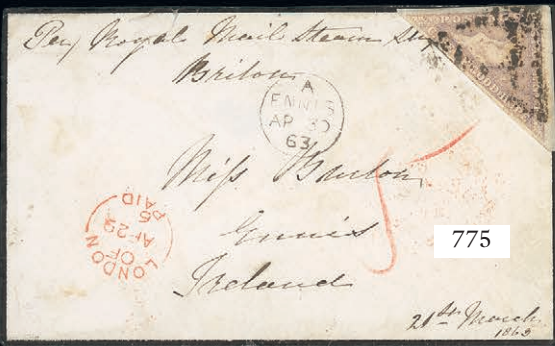 Per Royal Mail Steam Ship
Briton
A
ENNIS
AP 30
63
Miss Burton
Ennis
Ireland
LONDON
OF
AP 29
5
PAID
775
21st March
1863